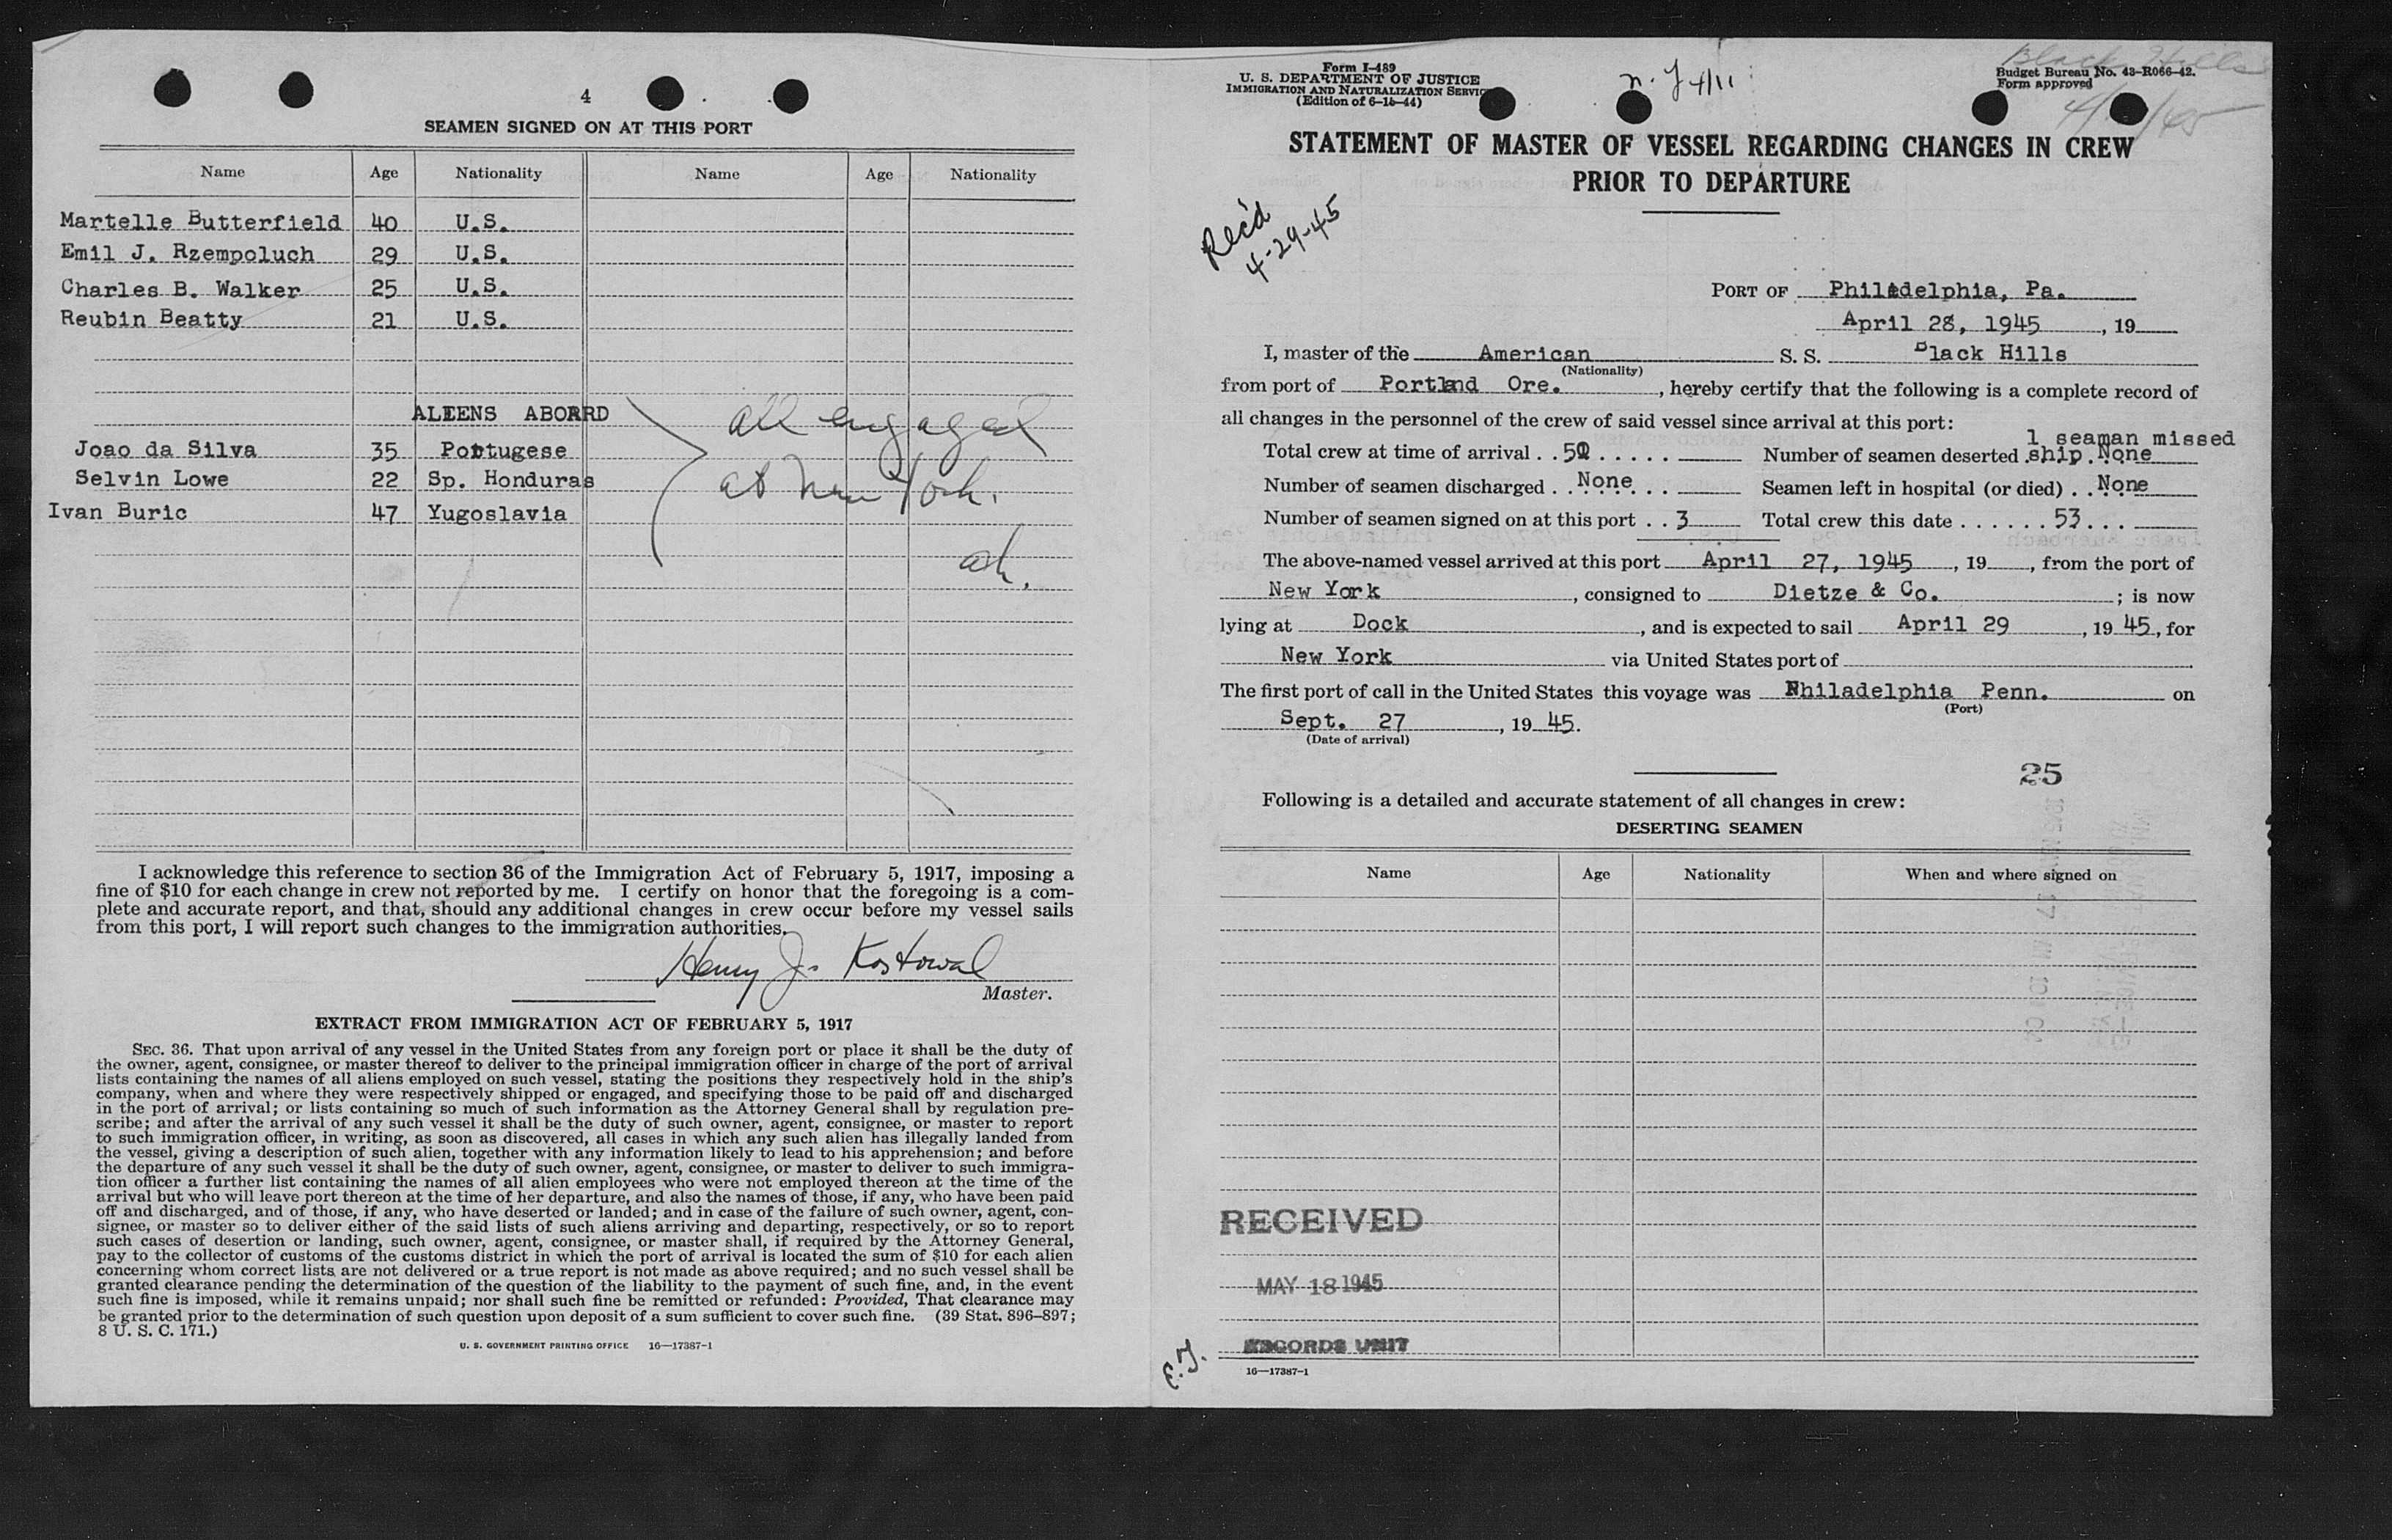 4
SEAMEN SIGNED ON AT THIS PORT
Name Age Nationality Name Age Nationality
Martelle Butterfield 40 U.S.
Emil J. Rzempoluch 29 U.S.
Charles B. Walker 25 U.S.
Reubin Beatty 21 U.S.
ALIENS ABOARD
Joao da Silva 35 Portugese
Selvin Lowe 22 Sp. Honduras
Ivan Buric 47 Yugoslavia
all engaged
at New York.
I acknowledge this reference to section 36 of the Immigration Act of February 5, 1917, imposing a
fine of $10 for each change in crew not reported by me. I certify on honor that the foregoing is a com-
plete and accurate report, and that, should any additional changes in crew occur before my vessel sails
from this port, I will report such changes to the immigration authorities.
Henry J. Kostowal
Master.
EXTRACT FROM IMMIGRATION ACT OF FEBRUARY 5, 1917
SEC. 36. That upon arrival of any vessel in the United States from any foreign port or place it shall be the duty of
the owner, agent, consignee, or master thereof to deliver to the principal immigration officer in charge of the port of arrival
lists containing the names of all aliens employed on such vessel, stating the positions they respectively hold in the ship's
company, when and where they were respectively shipped or engaged, and specifying those to be paid off and discharged
in the port of arrival; or lists containing so much of such information as the Attorney General shall by regulation pre-
scribe; and after the arrival of any such vessel it shall be the duty of such owner, agent, consignee, or master to report
to such immigration officer, in writing, as soon as discovered, all cases in which any such alien has illegally landed from
the vessel, giving a description of such alien, together with any information likely to lead to his apprehension; and before
the departure of any such vessel it shall be the duty of such owner, agent, consignee, or master to deliver to such immigra-
tion officer a further list containing the names of all alien employees who were not employed thereon at the time of the
arrival but who will leave port thereon at the time of her departure, and also the names of those, if any, who have been paid
off and discharged, and of those, if any, who have deserted or landed; and in case of the failure of such owner, agent, con-
signee, or master so to deliver either of the said lists of such aliens arriving and departing, respectively, or so to report
such cases of desertion or landing, such owner, agent, consignee, or master shall, if required by the Attorney General,
pay to the collector of customs of the customs district in which the port of arrival is located the sum of $10 for each alien
concerning whom correct lists are not delivered or a true report is not made as above required; and no such vessel shall be
granted clearance pending the determination of the question of the liability to the payment of such fine, and, in the event
such fine is imposed, while it remains unpaid; nor shall such fine be remitted or refunded: Provided, That clearance may
be granted prior to the determination of such question upon deposit of a sum sufficient to cover such fine. (39 Stat. 896–897;
8 U. S. C. 171.)
U. S. GOVERNMENT PRINTING OFFICE 16—17387-1
Form I-489
U. S. DEPARTMENT OF JUSTICE
IMMIGRATION AND NATURALIZATION SERVICE
(Edition of 6-15-44)
n.y 4/11
Black Hills
Budget Bureau No. 43-R066-42.
Form approved
STATEMENT OF MASTER OF VESSEL REGARDING CHANGES IN CREW
PRIOR TO DEPARTURE
Rec'd
4-29-45
PORT OF Philadelphia, Pa.
April 28, 1945, 19
I, master of the American S. S. Black Hills
(Nationality)
from port of Portland Ore., hereby certify that the following is a complete record of
all changes in the personnel of the crew of said vessel since arrival at this port:
1 seaman missed
Total crew at time of arrival . . 50 . . . . . Number of seamen deserted ship None
Number of seamen discharged . None . . Seamen left in hospital (or died) . . None
Number of seamen signed on at this port . . 3 Total crew this date . . . . . . 53 . . .
The above-named vessel arrived at this port April 27, 1945, 19, from the port of
New York, consigned to Dietze & Co.; is now
lying at Dock, and is expected to sail April 29, 19 45, for
New York via United States port of
The first port of call in the United States this voyage was Philadelphia Penn. on
(Port)
Sept. 27, 19 45.
(Date of arrival)
25
Following is a detailed and accurate statement of all changes in crew:
DESERTING SEAMEN
Name Age Nationality When and where signed on
RECEIVED
MAY 18 1945
RECORDS UNIT
E.J.
16—17387-1